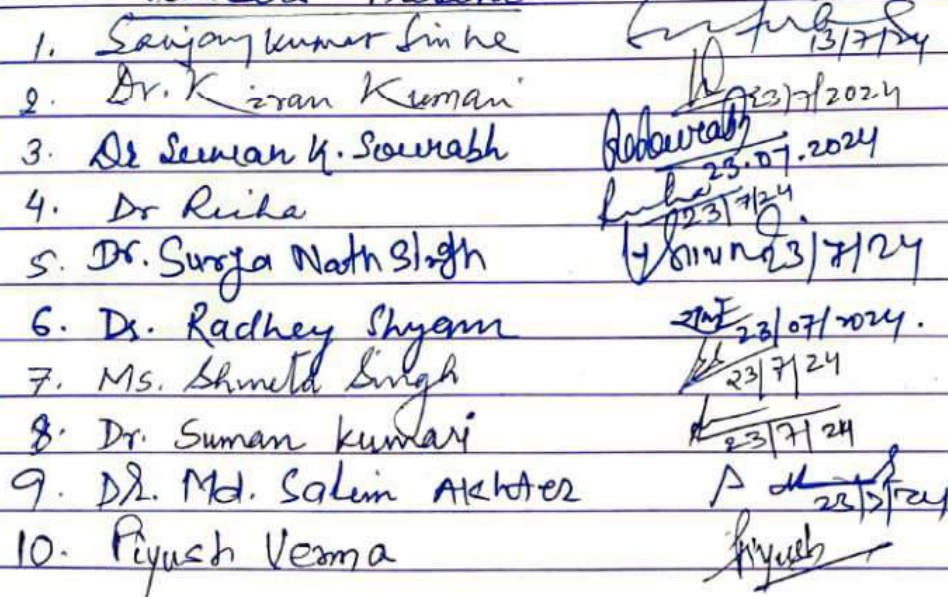 1. Sanjay Kumar Sinha 13/7/24
2. Dr. Kiran Kumari 23/7/2024
3. Dr Suman K. Sourabh 23.07.2024
4. Dr Richa 23/7/24
5. Dr. Surya Nath Singh 23/7/24
6. Dr. Radhey Shyam 23/07/2024.
7. Ms. Shweta Singh 23/7/24
8. Dr. Suman Kumari 23/7/24
9. DR. Md. Salim AKHtER 23/7/24
10. Piyush Verma Piyush